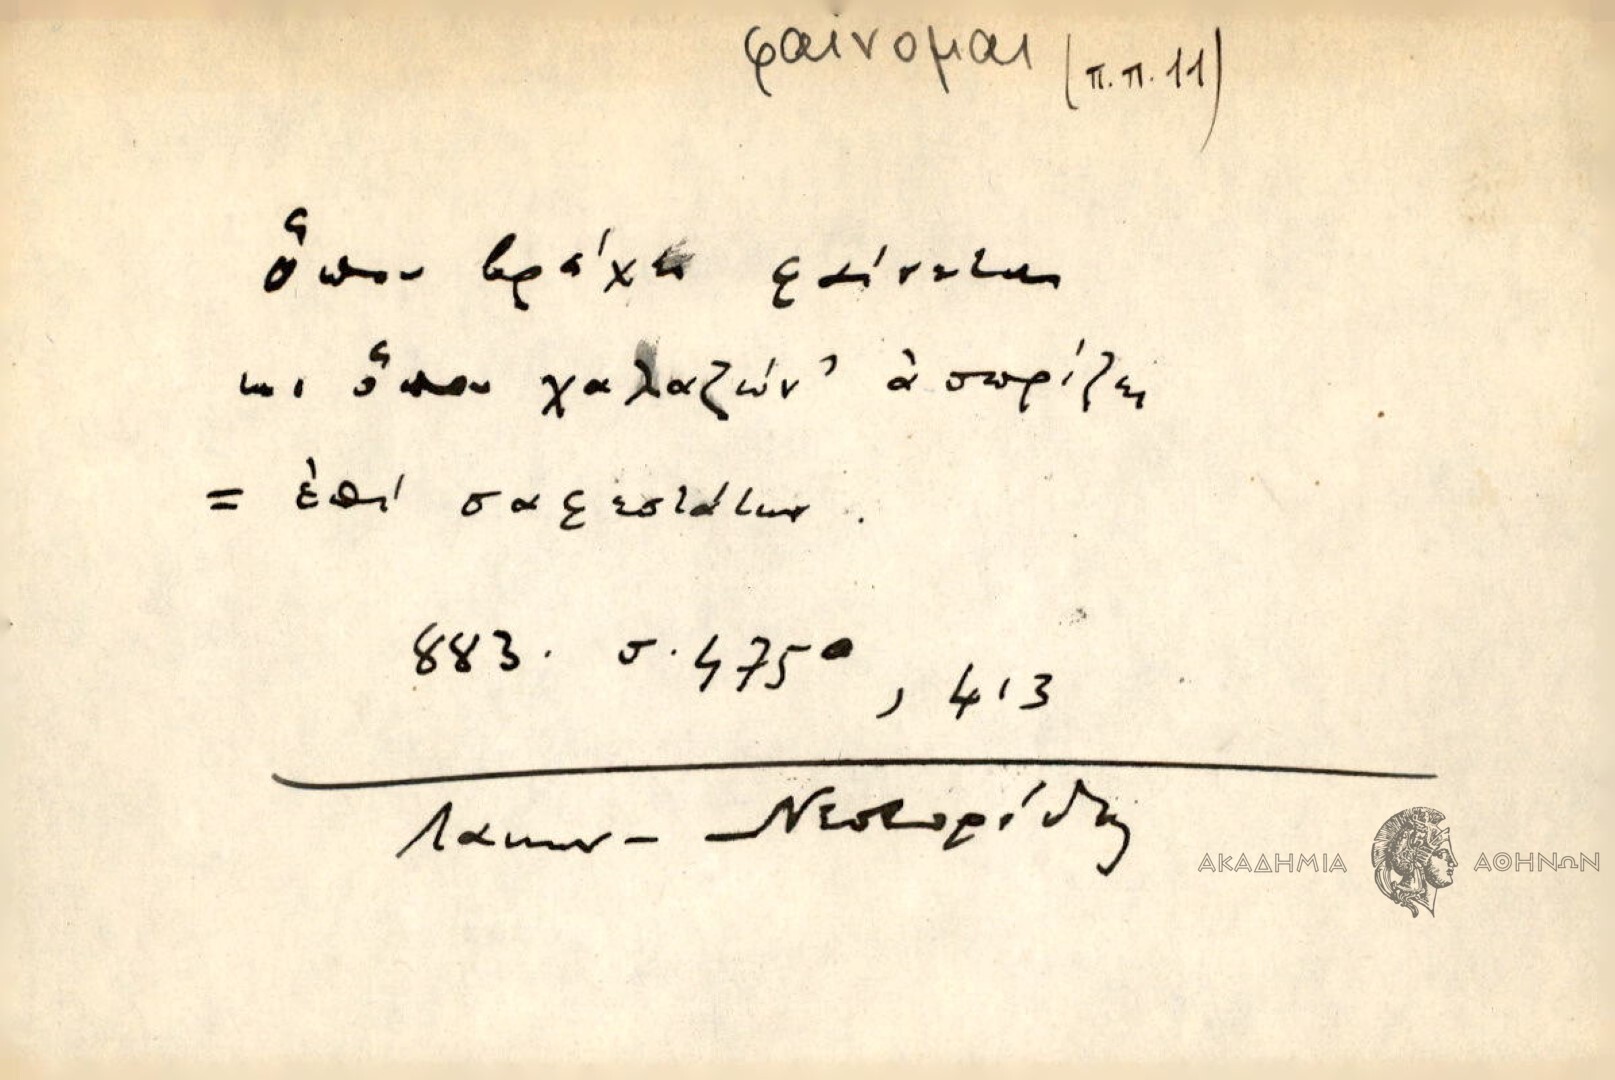 φαίνομαι (π.π. 11)
Ὅπου βρέχει φαίνεται
κι ὅπου χαλαζών' ἀσπρίζει
= ἐπί σαφεστάτων.
883. σ. 475α, 413
Λακων- Νεστορίδης
ΑΚΑΔΗΜΙΑ ΑΘΗΝΩΝ